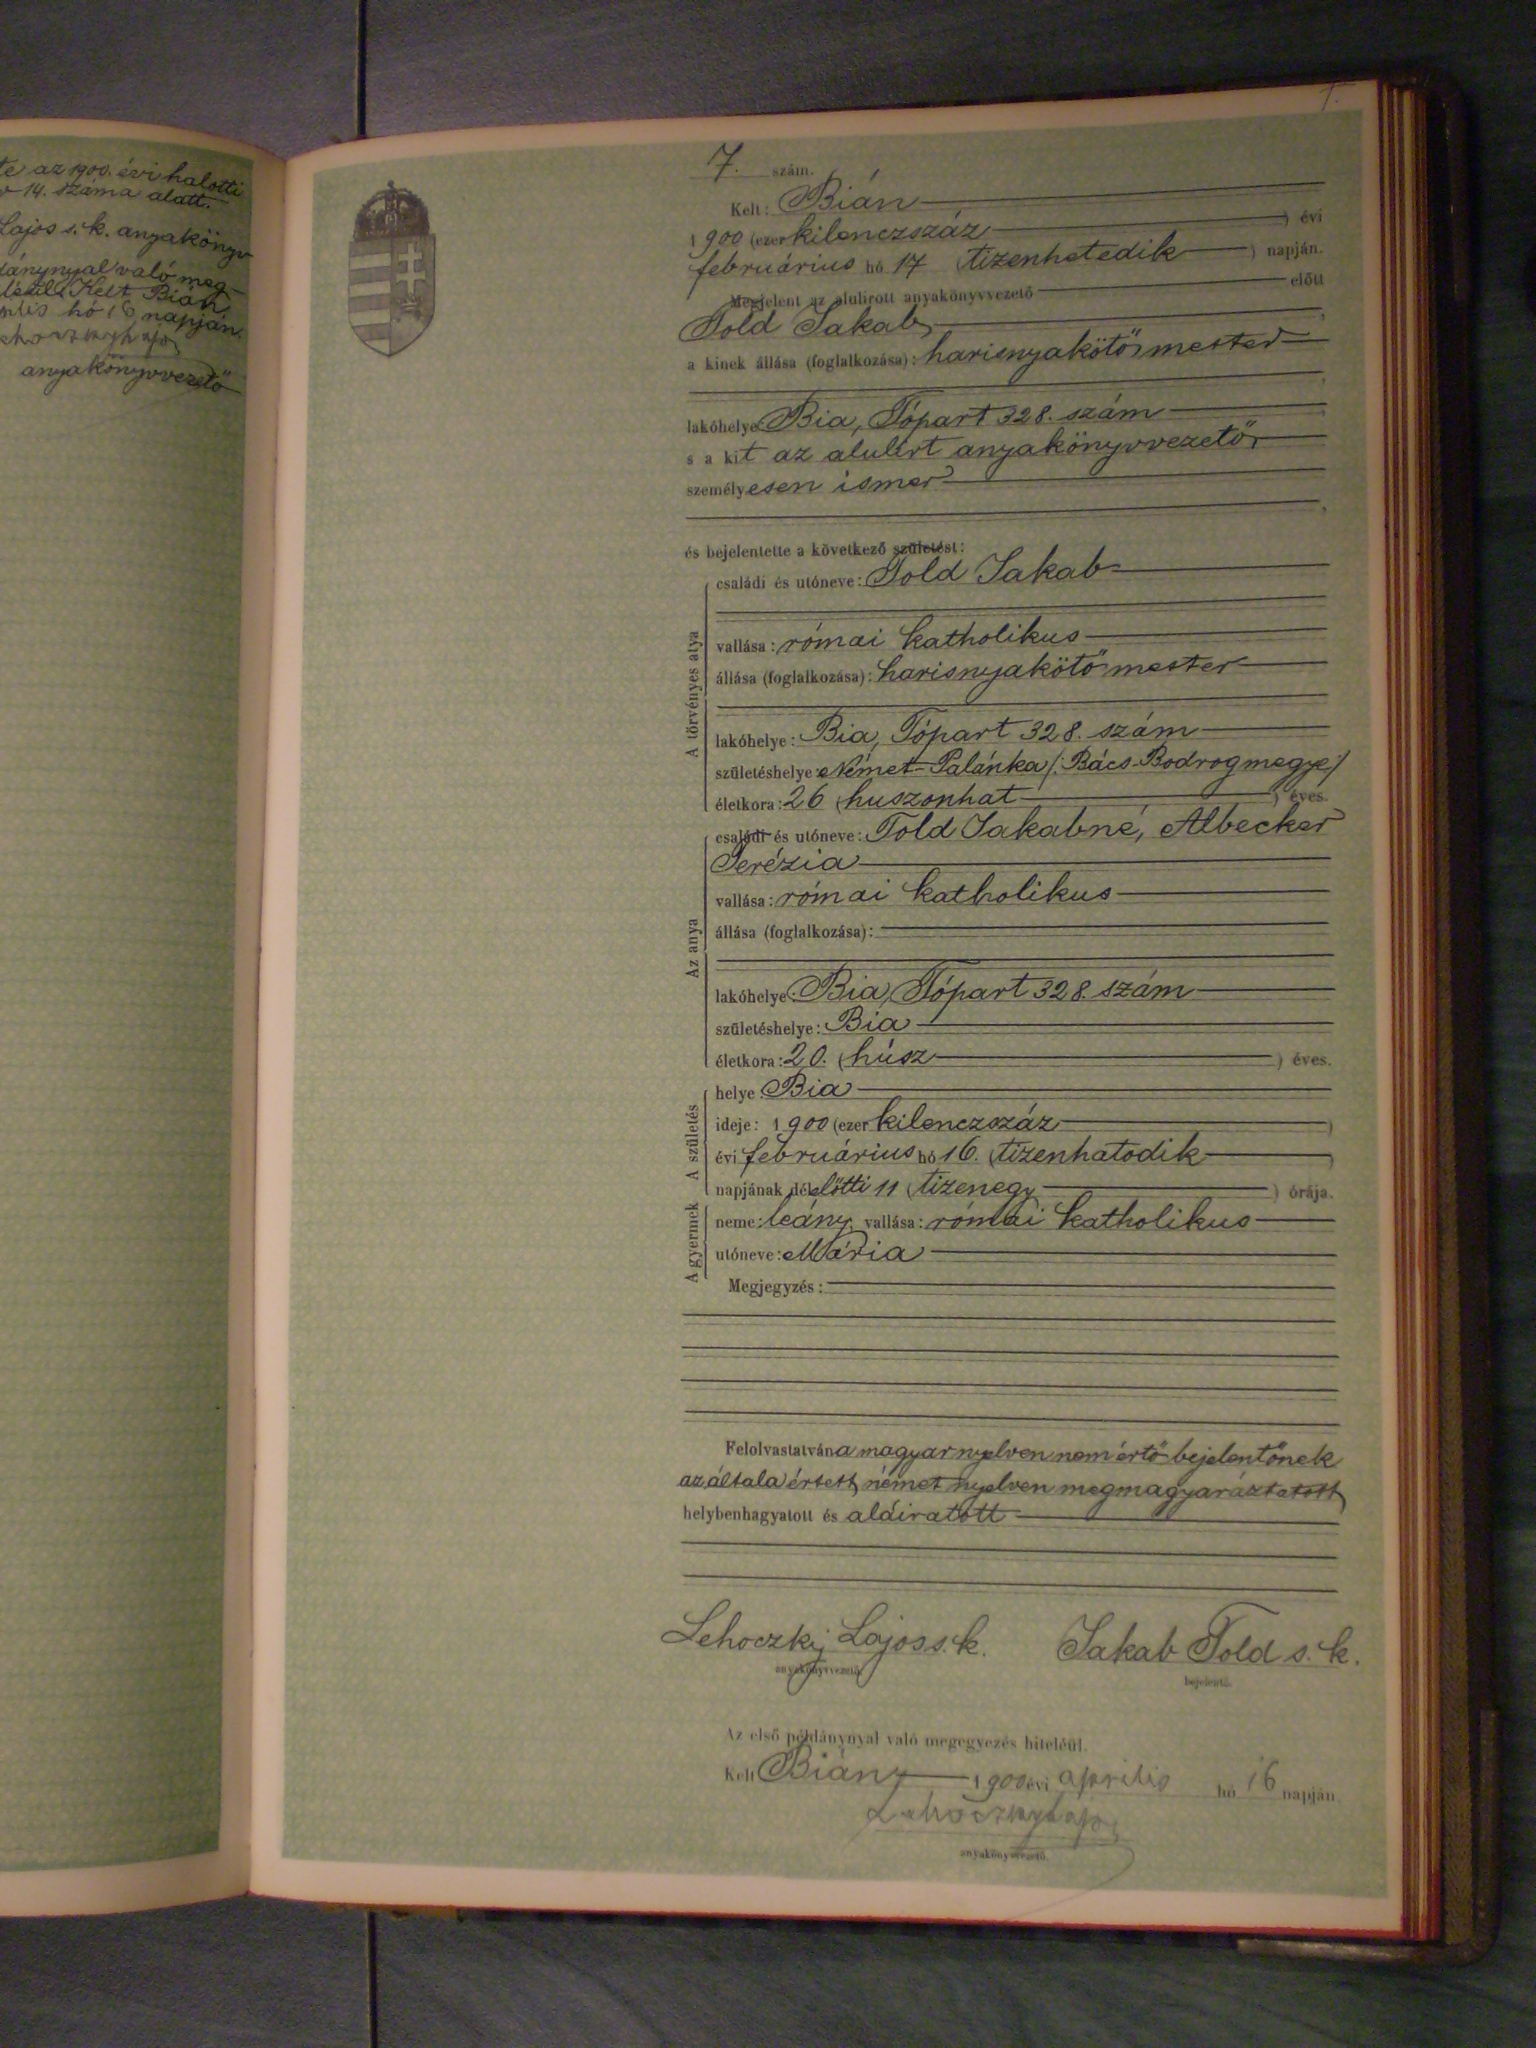 te az 1900. évi halotti
14. száma alatt.
Lajos s. k. anyakönyv
dánynyal való meg-
Kelt Bián
hó 16 napján.
anyakönyvvezető
7. szám.
Kelt: Bián
1900 (ezer kilenczszáz) évi
februárius hó 17 (tizenhetedik) napján.
Megjelent az alulirott anyakönyvvezető előtt
Told Jakab,
a kinek állása (foglalkozása): harisnyakötő mester
lakóhelye Bia, Tópart 328. szám
s a kit az alulirt anyakönyvvezető
személyesen ismer
és bejelentette a következő születést:
A törvényes atya
családi és utóneve: Told Jakab
vallása: római katholikus
állása (foglalkozása): harisnyakötő mester
lakóhelye: Bia, Tópart 328. szám
születéshelye: Német-Palánka /: Bács-Bodrogmegye :/
életkora: 26 (huszonhat) éves.
Az anya
családi és utóneve: Told Jakabné, Albecker
Terézia
vallása: római katholikus
állása (foglalkozása):
lakóhelye: Bia, Tópart 328. szám
születéshelye: Bia
életkora: 20. (húsz) éves.
A születés
helye: Bia
ideje: 1900 (ezer kilenczszáz)
évi februárius hó 16. (tizenhatodik)
napjának délelőtti 11 (tizenegy) órája.
A gyermek
neme: leány, vallása: római katholikus
utóneve: Mária
Megjegyzés:
Felolvastatván a magyar nyelven nem értő bejelentőnek
az általa értett német nyelven megmagyaráztatott,
helybenhagyatott és aláiratott
Lehoczky Lajos s. k. Jakab Told s. k.
anyakönyvvezető. bejelentő.
Az első példánynyal való megegyezés hiteléül.
Kelt Bián, 1900 évi április hó 16 napján.
Lehoczky Lajos
anyakönyvvezető.